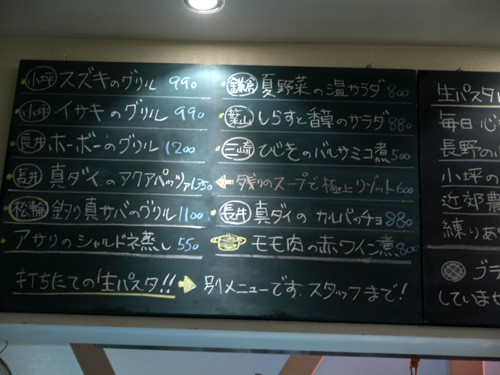 小坪 スズキのグリル 990
小坪 イサキのグリル 990
長井 ホーボーのグリル 1200
長井 真ダイのアクアパッツァ 1350
松輪 釣り真サバのグリル 1100
アサリのシャルドネ蒸し 550
鎌倉 真野菜の温サラダ 800
葉山 しらすと香草のサラダ 880
三崎 ひじきのバルサミコ煮 500
← 残りのスープで極上リゾット 600
長井 真ダイのカルパッチョ 880
モモ肉の赤ワイン煮 800
打ちたての生パスタ!! → 別メニューです。スタッフまで!
生パスタ
毎日
長野の
小坪の
近郊農
練りあ
していませ